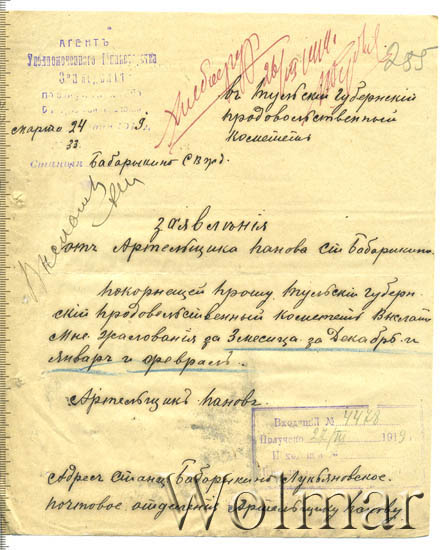 АГЕНТЪ
Уполномоченнаго Министерства
Земледѣлія
марта 24
33
Станція Бабарыкино С В ж д.
285
въ Тульскій Губернскій
продовольственный
комететъ
заявленія
отъ Артельщика Панова ст Бабарикино
покорнещей прошу Тульскій губерн-
скій продовольственный комететъ выслати
мне жалованія за 3 месеца за Декабрь и
Январь и февраль.
Артельщикъ Пановъ
Входящій № 4478
Получено 27/III 1919 г.
Адресъ станц Бабарыкино Лукьяновское
почтовое отделения Артельщику Панову
Wolmar